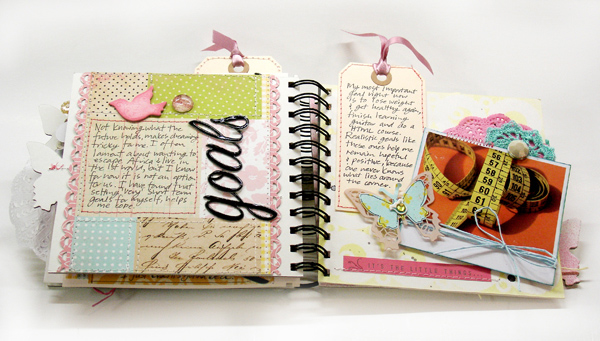 Not knowing what the
future holds, makes dreaming
tricky for me. I often
about wanting to
escape Africa & live in
the 1st world, but I know
for now it is not an option
for us. I have found that
setting very short term
goals for myself, helps
me cope.
goals
My most important
goal right now
is to lose weight
& get healthy again,
finish learning
guitar and do a
HTML course.
Realistic goals like
these ones help me
remain hopeful
& positive, because
one never knows
what lies around
the corner.
56
57
58
59
60
61
IT'S THE LITTLE THINGS...